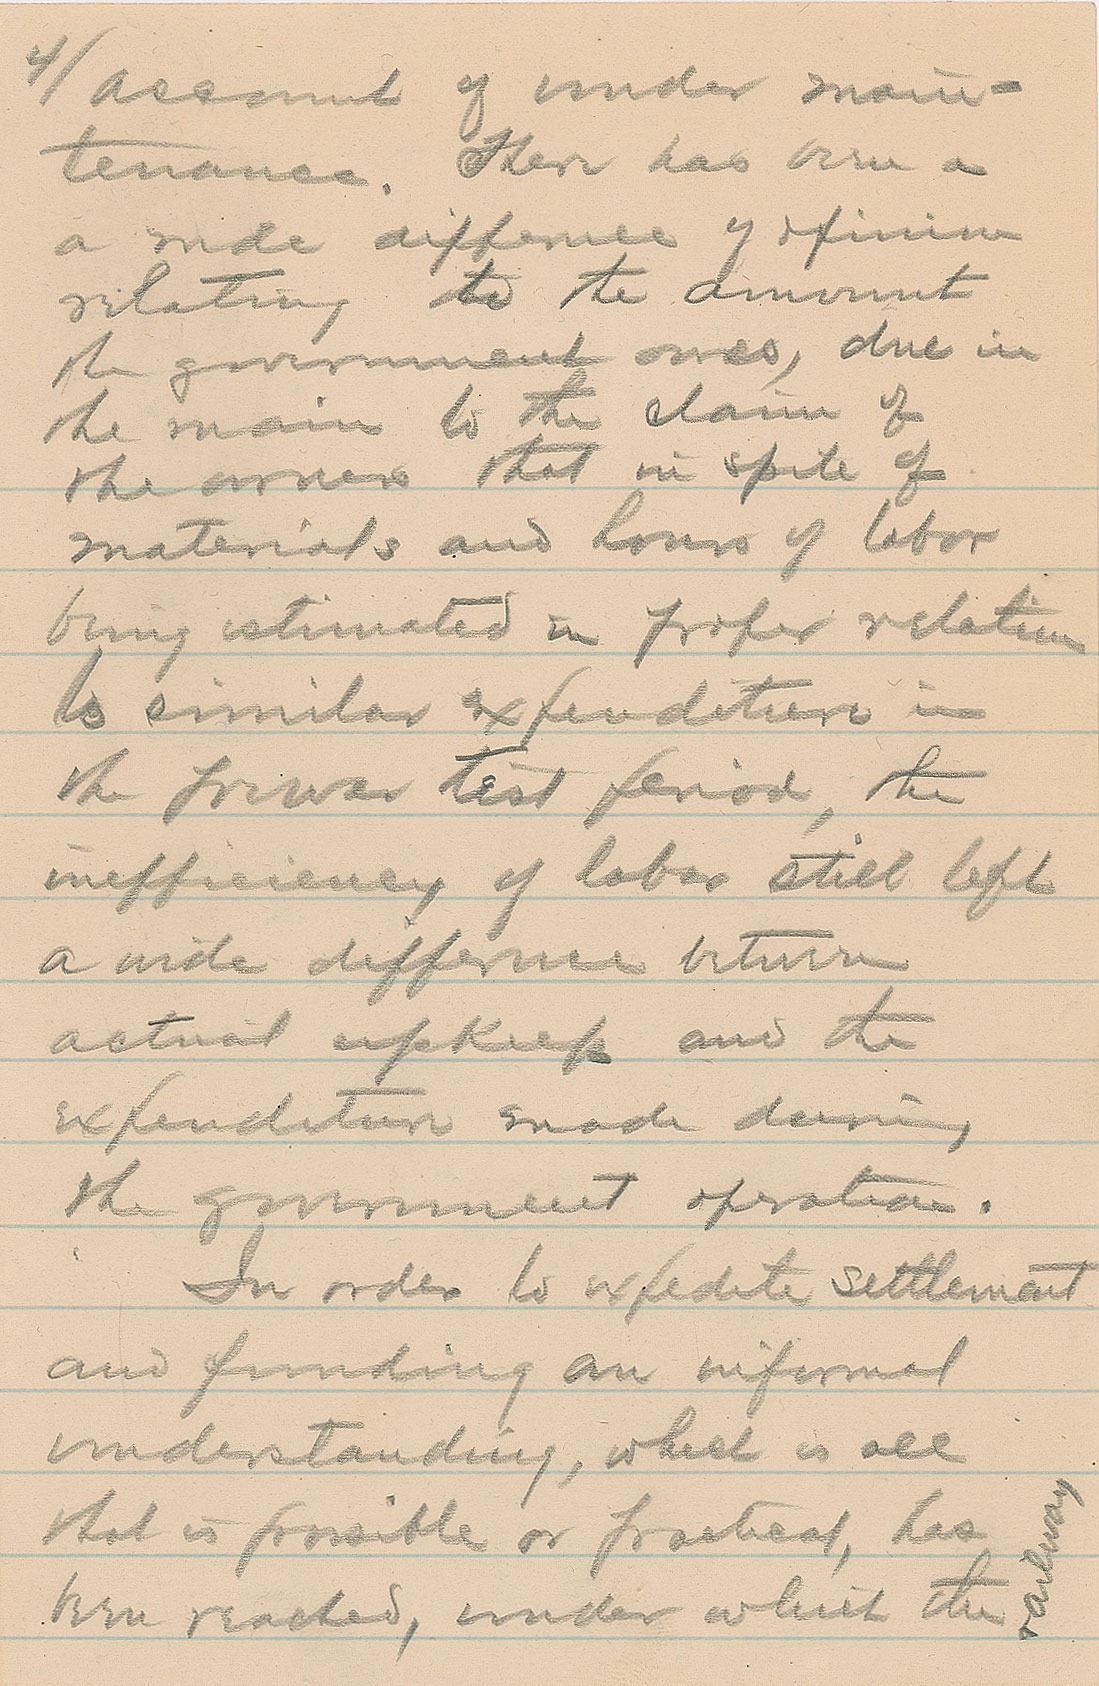 4/ account of under main-
tenance. There has been a
a wide difference of opinion
relating to the amount
the government owes, due in
the main to the claim of
the owners that in spite of
materials and hours of labor
being estimated in proper relation
to similar expenditure in
the prewar test period, the
inefficiency of labor still left
a wide difference between
actual upkeep and the
expenditure made during
the government operation.
In order to expedite settlement
and funding an informal
understanding, which is all
that is possible or practical, has
been reached, under which the railway